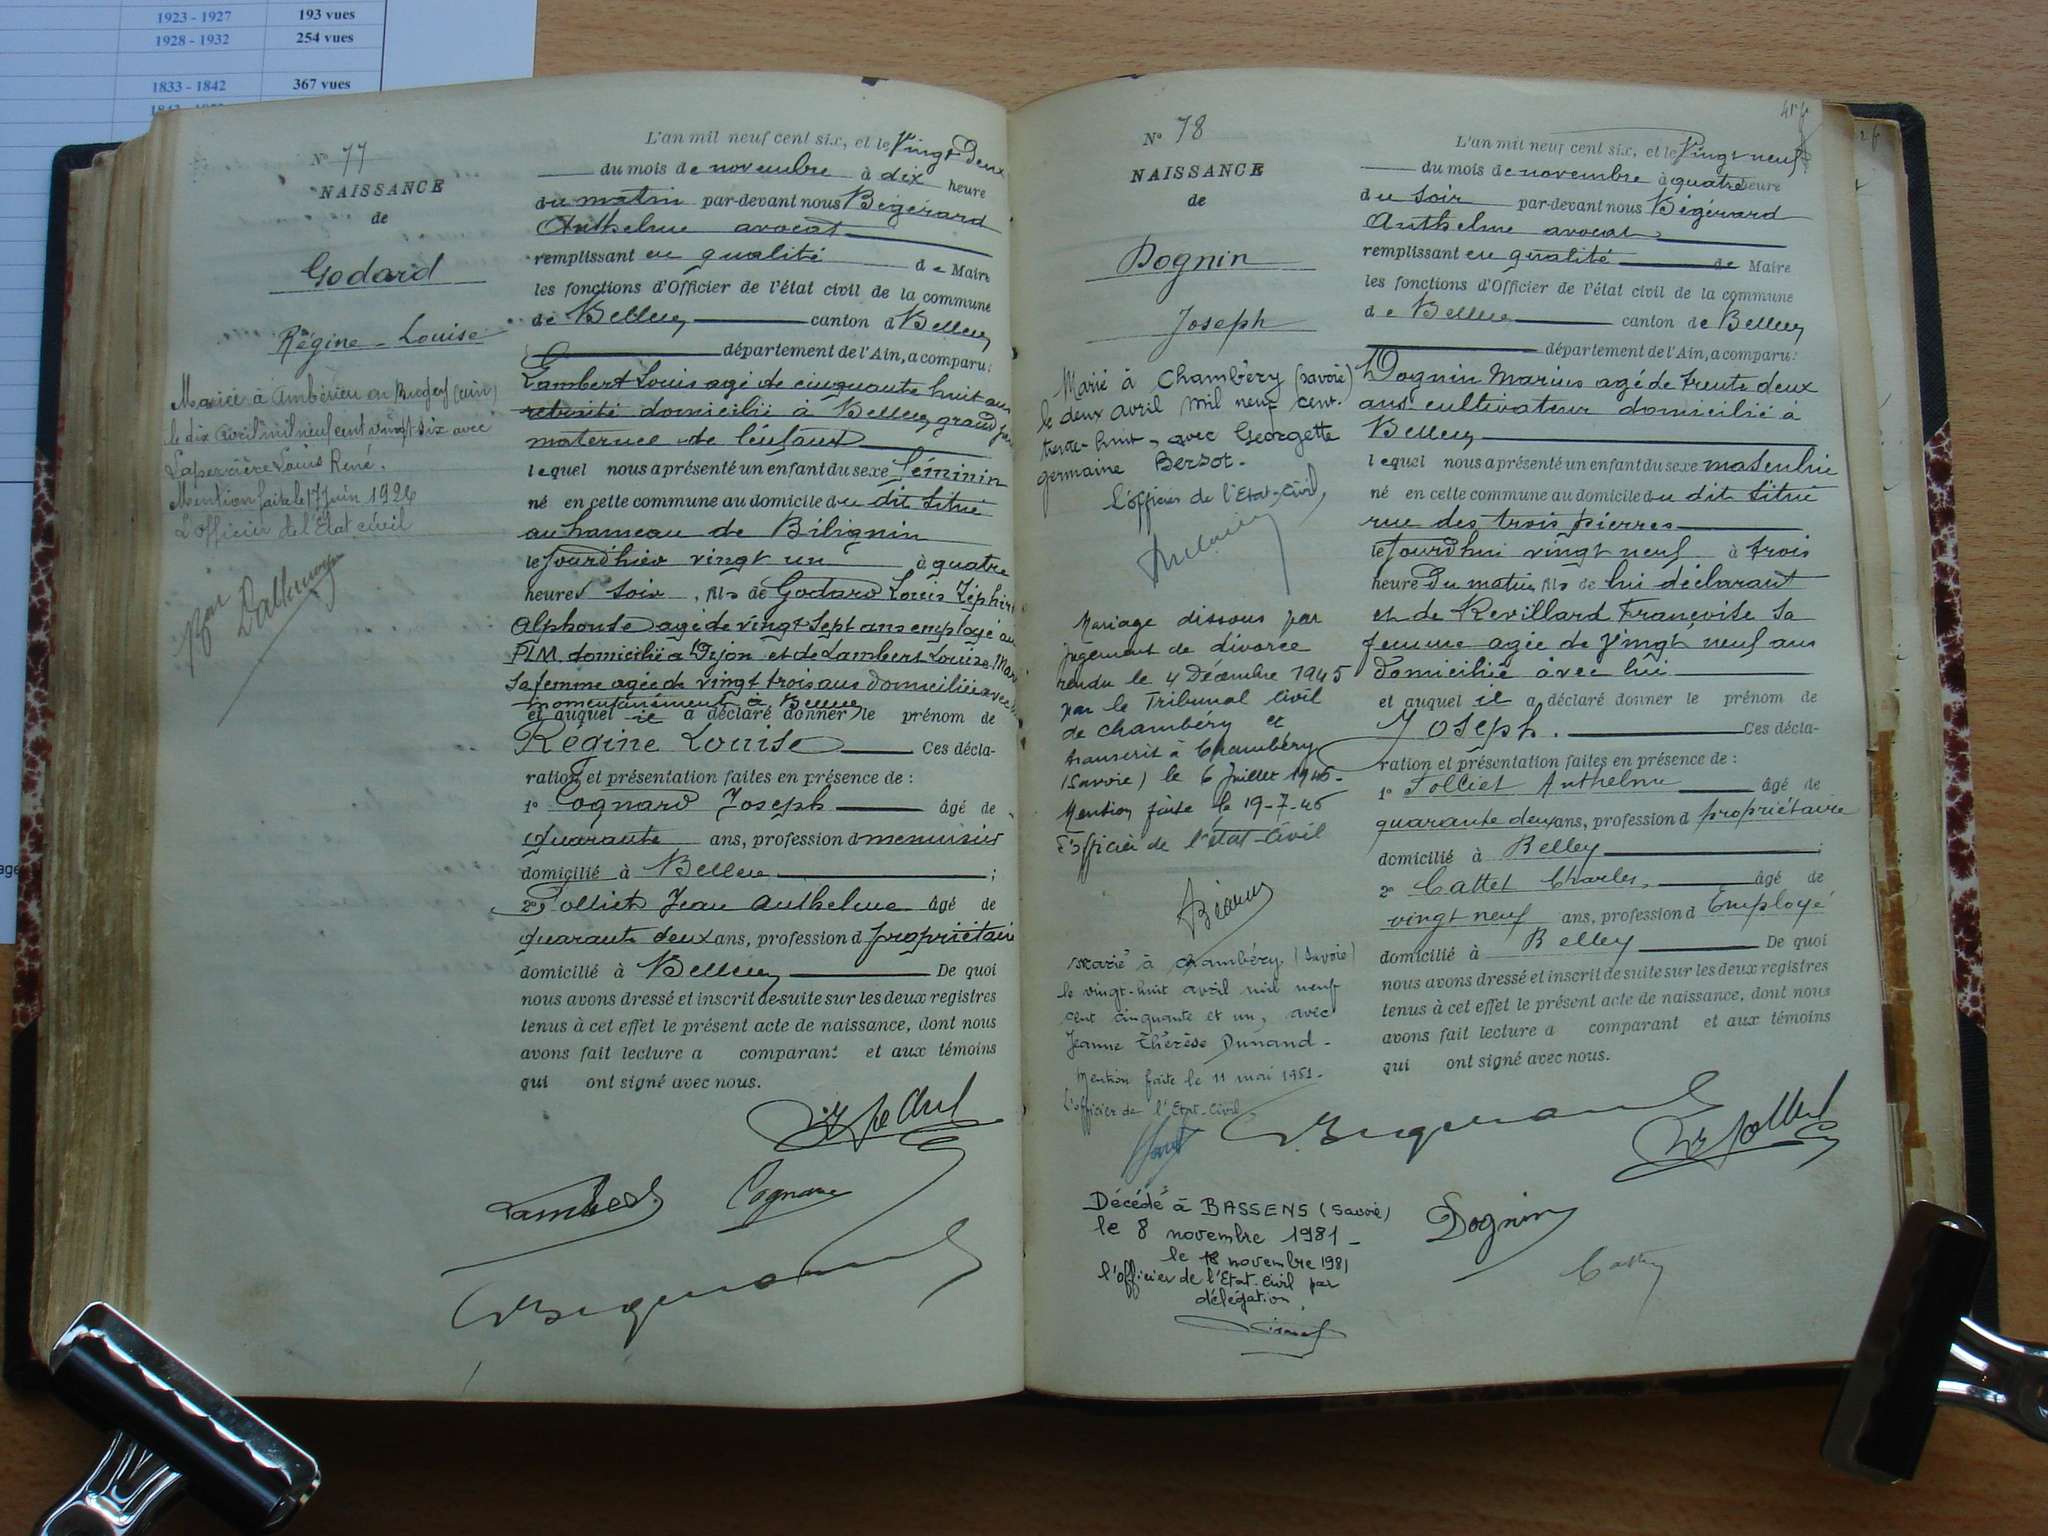 1923 - 1927 193 vues
1928 - 1932 254 vues
1833 - 1842 367 vues
N° 77
NAISSANCE
de
Godard
Régine - Louise
Marié à Ambérieu en Bugey (ain)
le dix avril mil neuf cent vingt six avec
Laperrière Louis René.
Mention faite le 17 Juin 1926
L'officier de l'État civil
L'an mil neuf cent six, et le Vingt Deux
du mois de novembre à dix heure
du matin par-devant nous Bégérard
Anthelme avocat
remplissant en qualité de Maire
les fonctions d'Officier de l'état civil de la commune
de Belley canton d Belley
département de l'Ain, a comparu:
Lambert Louis agé de cinquante huit ans
retraité domicilié à Belley, grand père
maternel de l'enfant
lequel nous a présenté un enfant du sexe féminin
né en cette commune au domicile du dit situé
au hameau de Bilignin
le jourd'hier vingt un à quatre
heures soir, fils de Godard Louis Zéphir
Alphonse agé de vingt sept ans employé au
PLM domicilié à Dijon et de Lambert Louise Marie
sa femme agée de vingt trois ans domiciliée avec lui
momentanément à Belley
et auquel il a déclaré donner le prénom de
Régine Louise Ces décla-
ration et présentation faites en présence de :
1° Cognard Joseph âgé de
quarante ans, profession d menuisier
domicilié à Belley ;
2° Tolliet Jean Anthelme âgé de
quarante deux ans, profession d propriétaire
domicilié à Belley De quoi
nous avons dressé et inscrit de suite sur les deux registres
tenus à cet effet le présent acte de naissance, dont nous
avons fait lecture a comparant et aux témoins
qui ont signé avec nous.
Lambert Cognard
N° 78
NAISSANCE
de
Dognin
Joseph
Marié à Chambéry (Savoie)
le deux avril mil neuf cent
trente-huit, avec Georgette
germaine Bersot.
L'officier de l'Etat-Civil,
Mariage dissous par
jugement de divorce
rendu le 4 Décembre 1945
par le Tribunal Civil
de Chambéry et
transcrit à Chambéry
(Savoie) le 6 Juillet 1946.
Mention faite le 19-7-46
L'officier de l'état-Civil
Marié à Chambéry (Savoie)
le vingt-huit avril mil neuf
cent cinquante et un, avec
Jeanne Thérèse Dunand.
Mention faite le 11 mai 1951.
L'officier de l'Etat-Civil,
Décédé à BASSENS (Savoie)
le 8 novembre 1981
le 18 novembre 1981
l'officier de l'Etat-Civil par
délégation,
L'an mil neuf cent six, et le Vingt neuf
du mois de novembre à quatre heure
du soir par-devant nous Bégérard
Anthelme avocat
remplissant en qualité de Maire
les fonctions d'Officier de l'état civil de la commune
de Belley canton de Belley
département de l'Ain, a comparu:
Dognin Marius agé de trente deux
ans cultivateur domicilié à
Belley
lequel nous a présenté un enfant du sexe masculin
né en cette commune au domicile du dit situé
rue des trois pierres
le jourd'hui vingt neuf à trois
heure du matin, fils de lui déclarant
et de Revillard Françoise sa
femme agée de vingt neuf ans
domiciliée avec lui
et auquel il a déclaré donner le prénom de
Joseph. Ces décla-
ration et présentation faites en présence de :
1° Tolliet Anthelme âgé de
quarante deux ans, profession d propriétaire
domicilié à Belley ;
2° Cattet Charles, âgé de
vingt neuf ans, profession d Employé
domicilié à Belley De quoi
nous avons dressé et inscrit de suite sur les deux registres
tenus à cet effet le présent acte de naissance, dont nous
avons fait lecture a comparant et aux témoins
qui ont signé avec nous.
Dognin